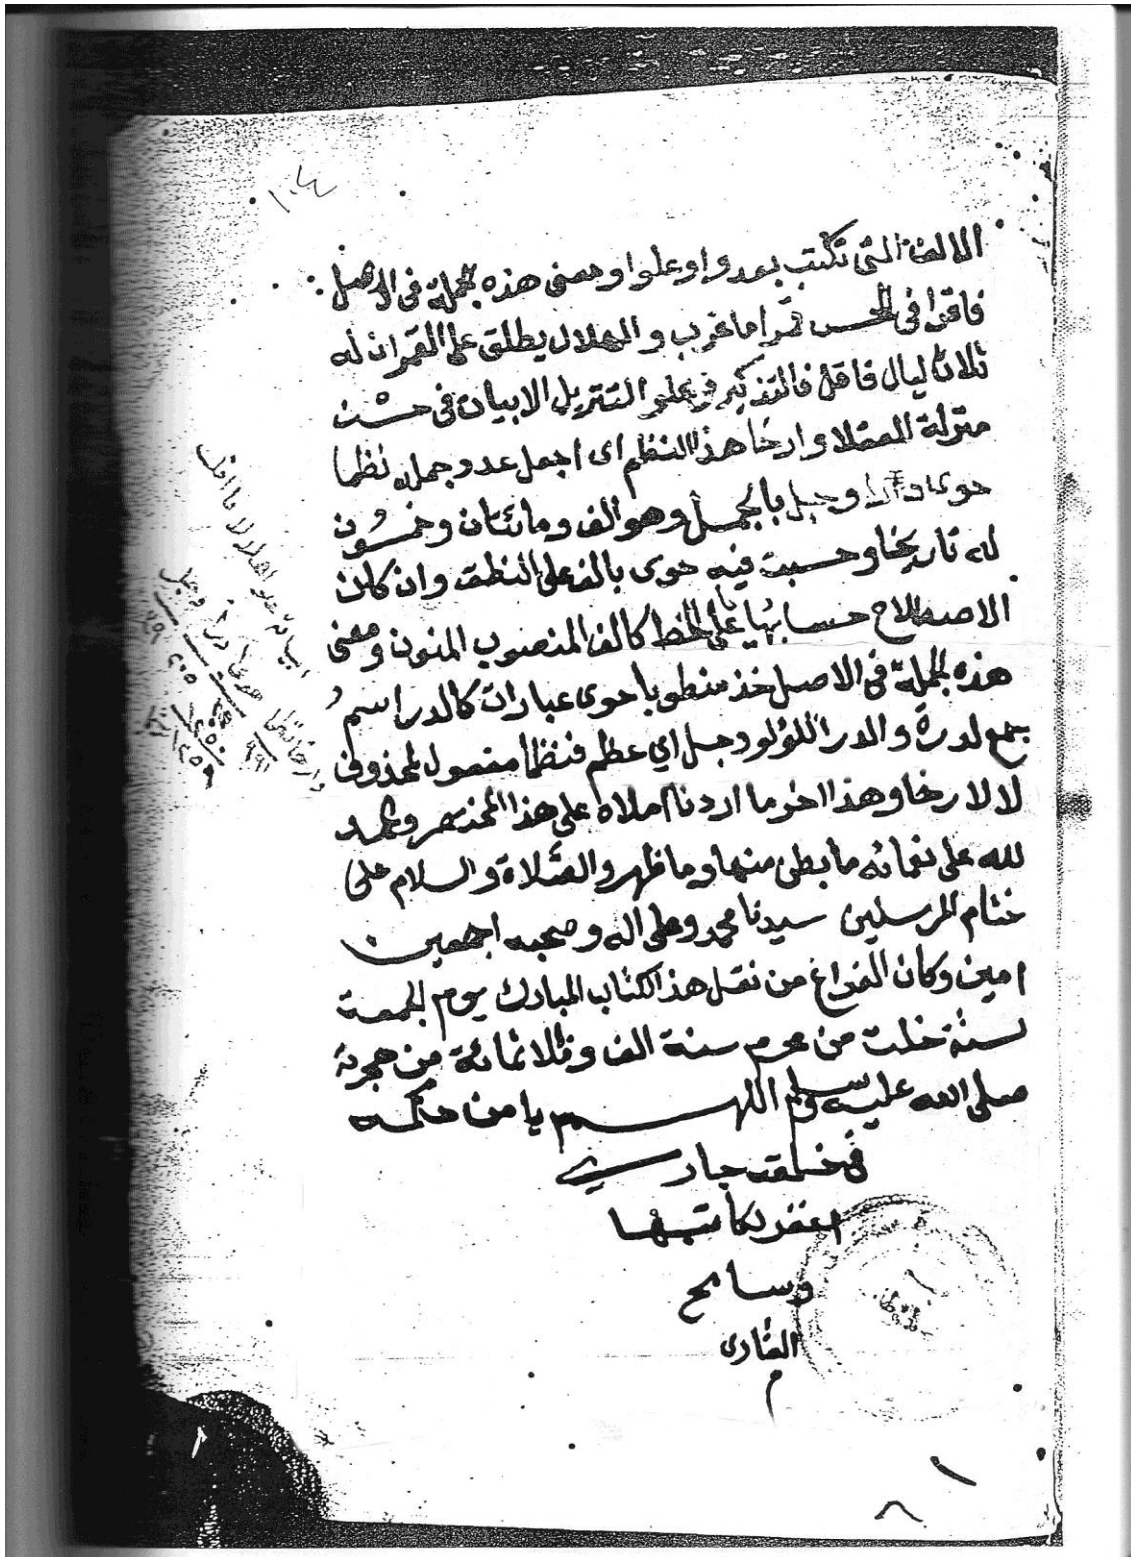 ١٠٤
الالف التى تكتب بعد واو علوا ومعنى هذه الجملة فى الاصل
فاقوا فى الحسن قمرا ما غرب والهلال يطلق على القمر ان له
ثلاث ليال فاقل فالتذكير فى علو التنزيل الابيات فى حسنت
منزلة العقلا وارخا هذا النظم اى اجعل عدد جملة نظما
حوى درا وجل بالجمل وهو الف ومائتان وخمسون
له تاريخا وحسبت فيه حوى بالف على النطق وان كان
الاصطلاح حسابها يا على الخط كالف المنصوب المنون ومعنى
هذه الجملة فى الاصل خذ منطوبا حوى عبارات كالدر اسم
جمع لدرة والدر اللؤلؤ وجل اي عظم فنظما مفعول لمحذوف
لا لارخا وهذا اخر ما اردنا املاه على هذا المختصر والحمد
لله على نعمائه ما بطن منها وما ظهر والصلاة والسلام على
ختام المرسلين سيدنا محمد وعلى اله وصحبه اجمعين
امين وكان الفراغ من نقل هذا الكتاب المبارك يوم الجمعة
لستة خلت من محرم سنة الف وثلاثمائة من هجرته
صلى الله عليه وسلم اللهم يا من حكمه
فى خلقه جاري
اغفر لكاتبها
وسامح
القارى
م
ابياته علوا هلالا ما افل
وارخا نظما حوى درا وجل